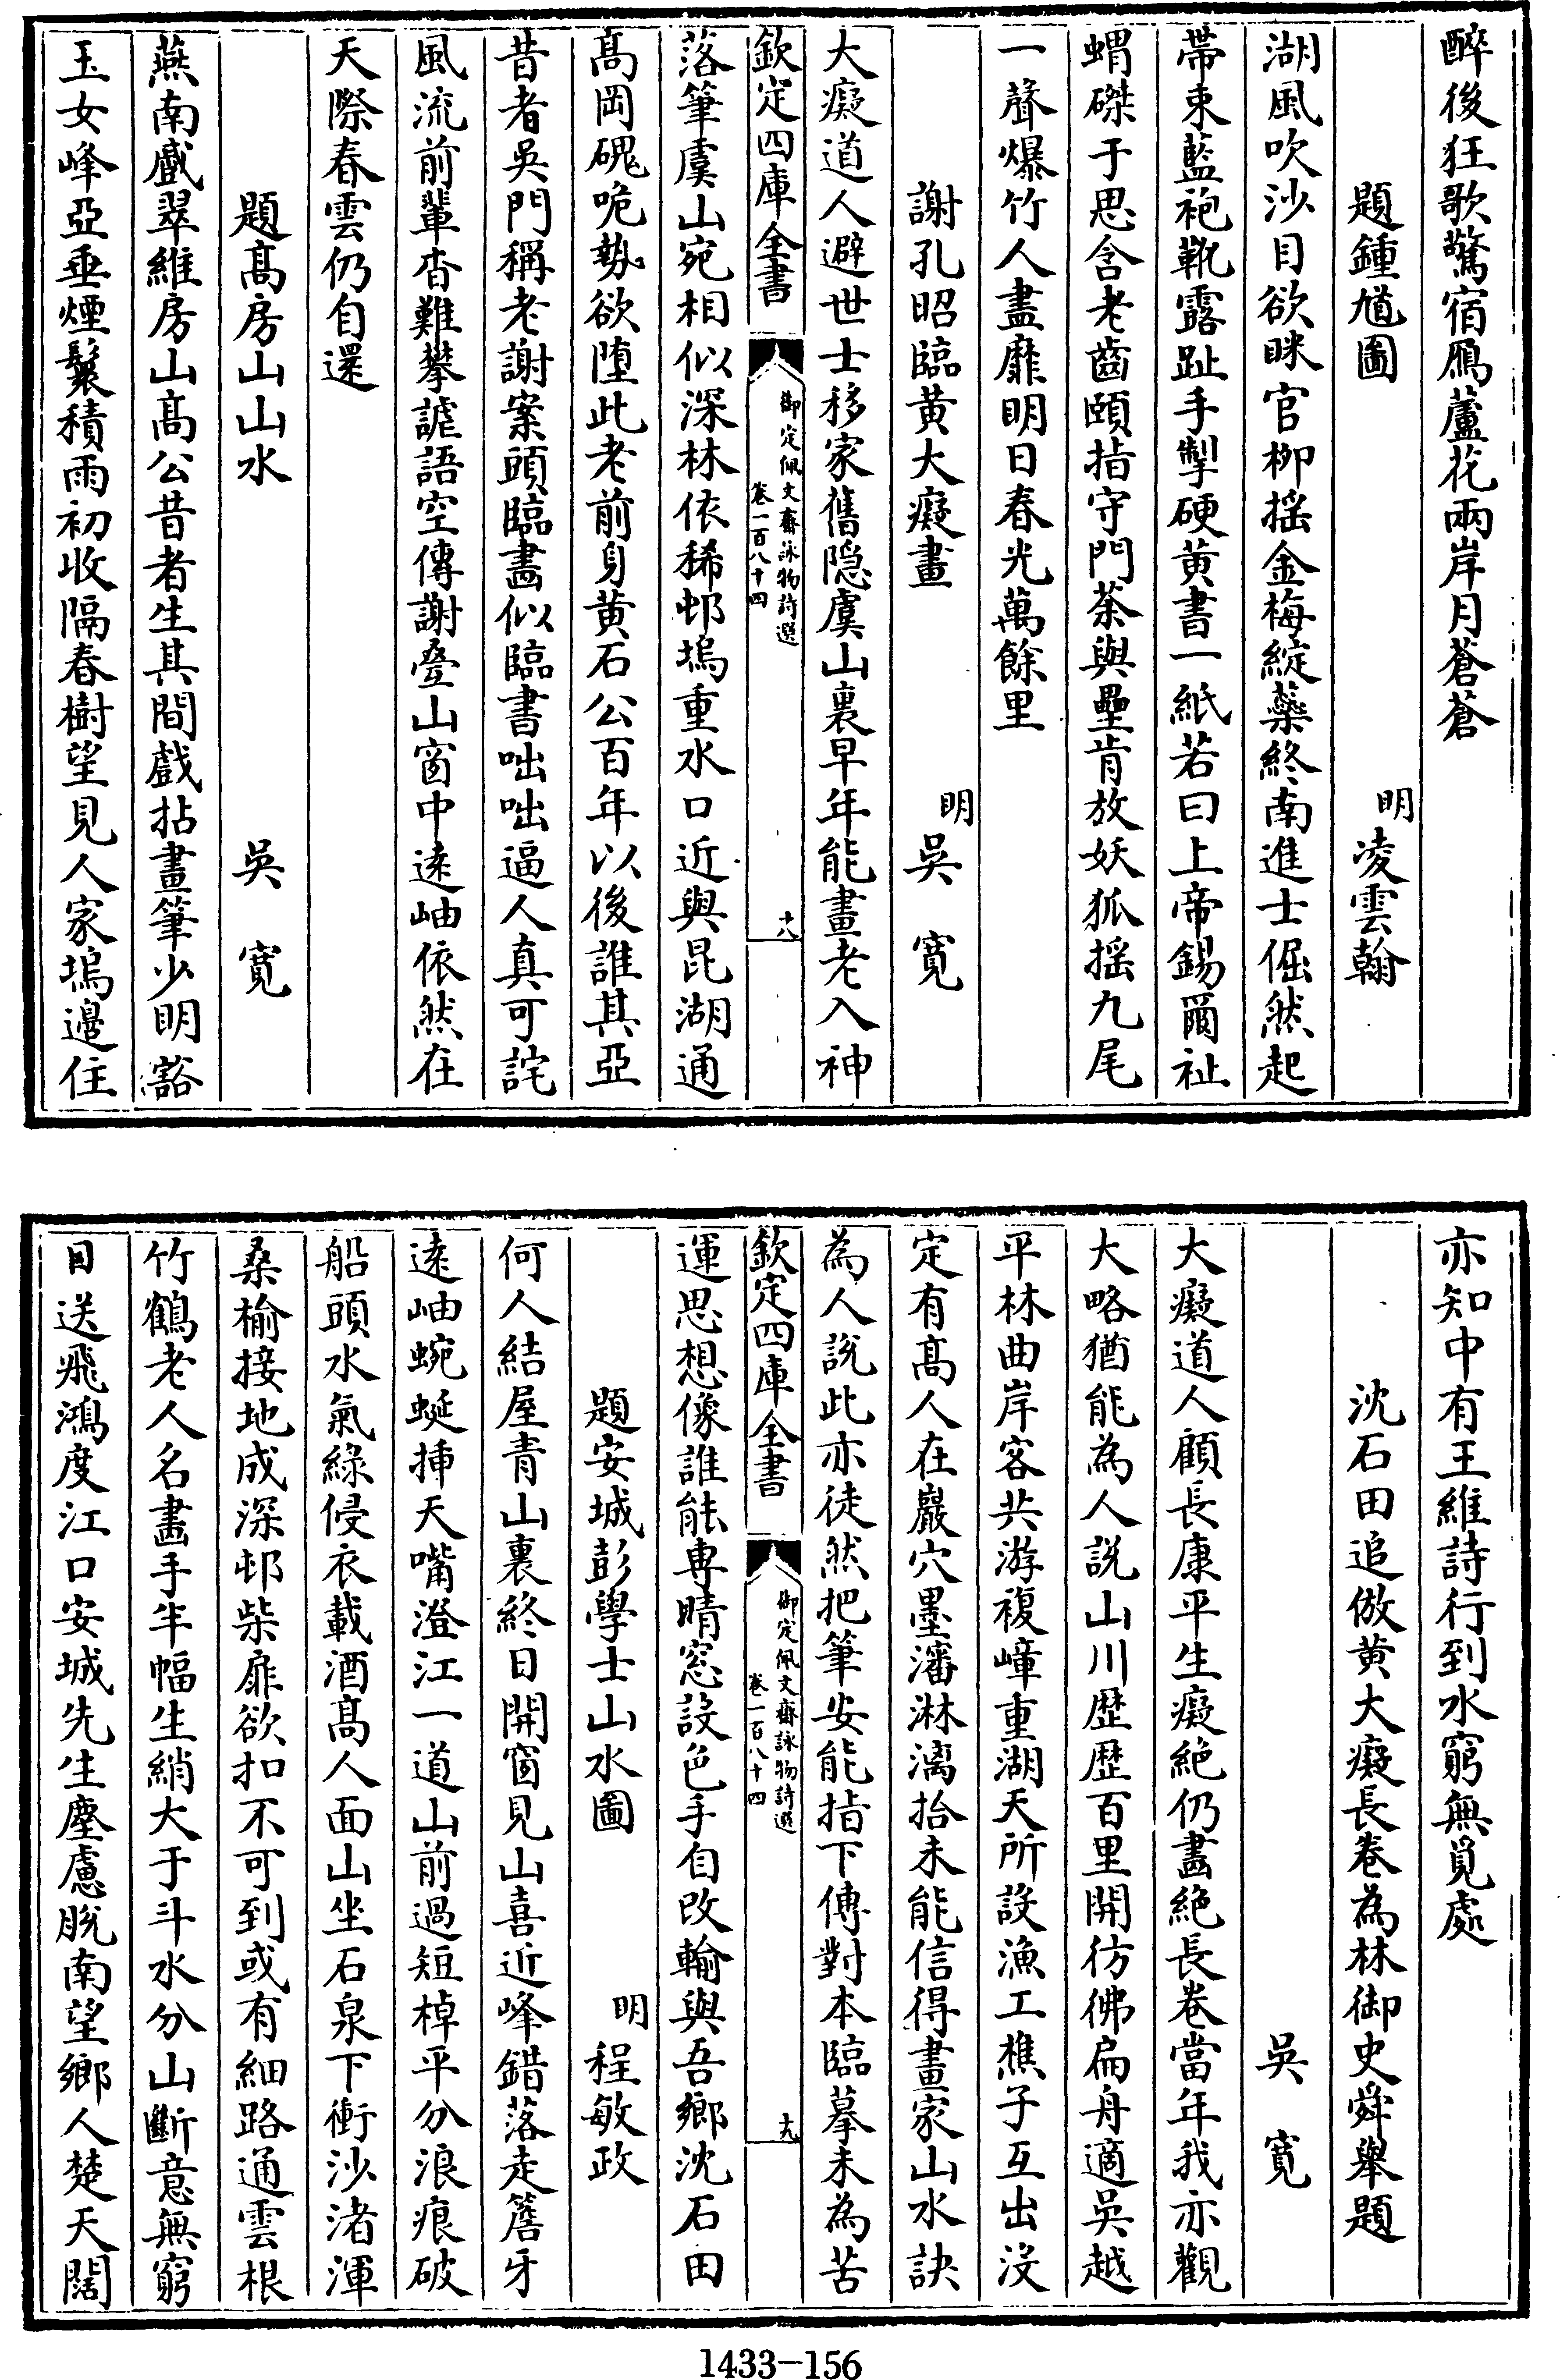 醉後狂歌驚宿鴈蘆花兩岸月蒼蒼
題鍾馗圖　明凌雲翰
湖風吹沙目欲眯官栁揺金梅綻蘂終南進士倔然起
帶束藍袍靴露趾手掣硬黄書一紙若曰上帝錫爾祉
蝟磔于思含老齒頤指守門荼與壘肯放妖狐揺九尾
一聲爆竹人盡靡明日春光萬餘里
謝孔昭臨黄大癡畫　明吳寛
大癡道人避世士移家舊隠虞山裏早年能畫老入神
欽定四庫全書　御定佩文齋詠物詩選　卷一百八十四　十八
落筆虞山宛相似深林依稀邨塢重水口近與昆湖通
髙岡磈硊勢欲墮此老前身黄石公百年以後誰其亞
昔者吳門稱老謝案頭臨畵似臨書咄咄逼人真可詫
風流前輩杳難攀謔語空傳謝疊山窗中逺岫依然在
天際春雲仍自還
題髙房山山水　吳寛
燕南戲翠維房山髙公昔者生其間戲拈畫筆少明豁
玉女峰亞垂煙鬟積雨初收隔春樹望見人家塢邉住
亦知中有王維詩行到水窮無覓處
沈石田追倣黄大癡長卷為林御史舜舉題
吳寛
大癡道人顧長康平生癡絶仍畵絶長卷當年我亦觀
大略猶能為人説山川歴歴百里開彷彿扁舟適吳越
平林曲岸客共游複嶂重湖天所設漁工樵子互出没
定有髙人在巖穴墨瀋淋漓拾未能信得畫家山水訣
為人説此亦徒然把筆安能指下傳對本臨摹未為苦
欽定四庫全書　御定佩文齋詠物詩選　卷一百八十四　十九
運思想像誰能専晴窓設色手自改輸與吾鄉沈石田
題安城彭學士山水圖　明程敏政
何人結屋青山裏終日開窗見山喜近峰錯落走簷牙
逺岫蜿蜒揷天嘴澄江一道山前過短棹平分浪痕破
船頭水氣綠侵衣載酒髙人面山坐石泉下衝沙渚渾
桑榆接地成深邨柴扉欲扣不可到或有細路通雲根
竹鶴老人名畵手半幅生綃大于斗水分山斷意無窮
目送飛鴻度江口安城先生塵慮脱南望鄉人楚天闊
1433—156